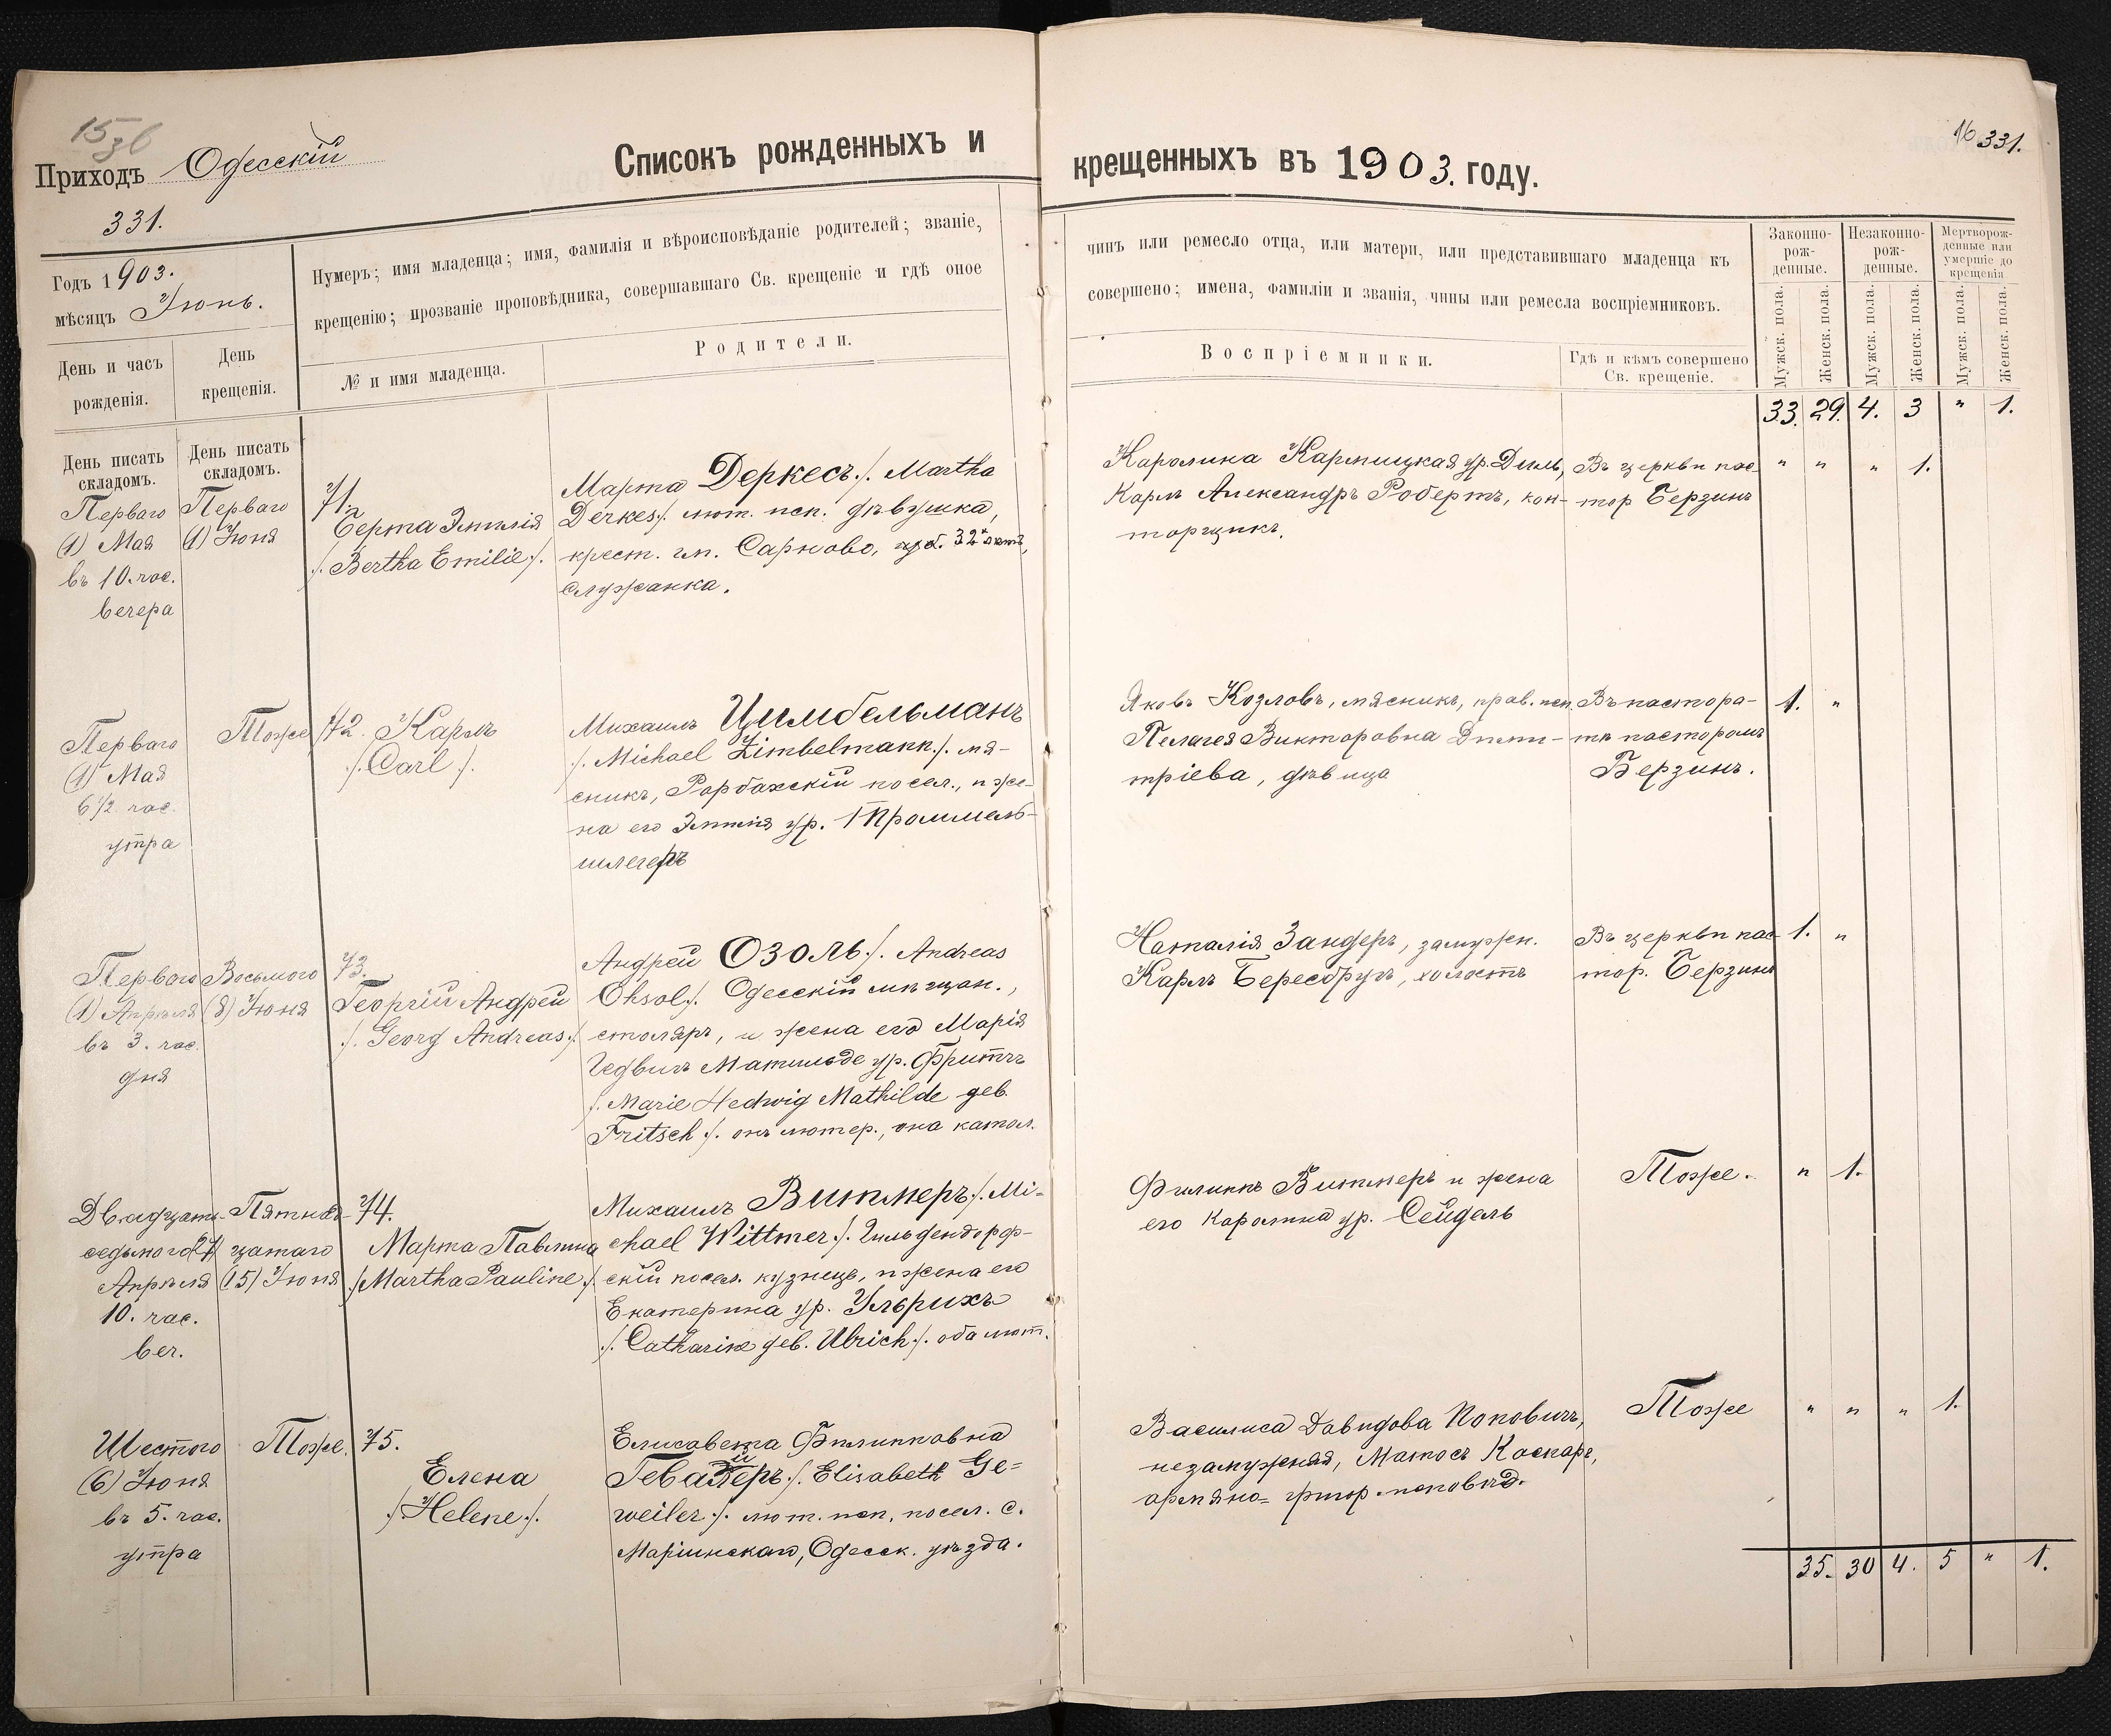 15
Приходъ Одесскій
331.
Списокъ рожденныхъ и
Годъ 1903.
мѣсяцъ Іюнь.
Нумеръ; имя младенца; имя, фамилія и вѣроисповѣданіе родителей; званіе,
крещенію; прозваніе проповѣдника, совершавшаго Св. крещеніе и гдѣ оное
День и часъ
рожденія.
День
крещенія.
№ и имя младенца.
Родители.
День писать
складомъ.
День писать
складомъ.
Перваго
(1) Мая
въ 10. час.
вечера
Перваго
(1) Іюня
71.
Берта Эмилія
/. Bertha Emilie /.
Марта Деркесъ /. Martha
Derkes /. лют. исп. дѣвушка,
крест. гм. Сарново, 32 лѣтъ,
служанка.
Перваго
(1) Мая
6 1/2 час.
утра
Тоже
72. Карлъ
/. Carl /.
Михаилъ Цимбельманъ
/. Michael Zimbelmann /. мя-
сникъ, Рорбахскій посел., и же-
на его Эмилія ур. Троммель-
шлегеръ
Перваго
(1) Апрѣля
въ 3. час.
дня
Восьмого
(8) Іюня
73.
Георгій Андрей
/. Georg Andreas /.
Андрей Озоль /. Andreas
Ohsol /. Одесскій мѣщан.,
столяръ, и жена его Марія
Гедвигъ Матильде ур. Фритчъ
/. Marie Hedwig Mathilde geb.
Fritsch /. онъ лютер., она катол.
Двадцать-
седьмого (27)
Апрѣля
10. час.
веч.
Пятнад-
цатаго
(15) Іюня
74.
Марта Павлина
/. Martha Pauline /.
Михаилъ Витмеръ /. Mi-
chael Wittmer /. Гильдендорф-
скій посел. кузнецъ, и жена его
Екатерина ур. Ульрихъ
/. Catharine geb. Ulrich /. оба лют.
Шестого
(6) Іюня
въ 5. час.
утра
Тоже.
75.
Елена
/. Helene /.
Елисавета Филипповна
/. Elisabeth Ge-
weiler /. лют. исп. посел. с.
Маріинскаго, Одесск. уѣзда.
16 331.
крещенныхъ въ 1903. году.
чинъ или ремесло отца, или матери, или представившаго младенца къ
совершено; имена, фамиліи и званія, чины или ремесла воспріемниковъ.
Воспріемники.
Гдѣ и кѣмъ совершено
Св. крещеніе.
Законно-
рож-
денные.
Незаконно-
рож-
денные.
Мертворож-
денные или
умершіе до
крещенія
Мужск. пола.
Женск. пола.
Мужск. пола.
Женск. пола.
Мужск. пола.
Женск. пола.
33. 29. 4. 3 " 1.
Каролина Кармицкая ур. Диль,
Карлъ Александръ Робертъ, кон-
торщикъ.
Въ церкви пас-
тор Берзинъ
" " " 1.
Яковъ Козловъ, мясникъ, прав. исп.
Пелагея Викторовна Дими-
тріева, дѣвица
Въ пастора-
тѣ пасторомъ
Берзинъ.
1. "
Наталія Зандеръ, замужн.
Карлъ Бересбругъ, холостъ
Въ церкви пас-
тор. Берзинъ
1. "
Филиппъ Витмеръ и жена
его Каролина ур. Сейдель
Тоже.
" 1.
Василиса Давидова Поповичъ,
незамужняя, Матосъ Каспаръ,
армяно-григор. исповѣд.
Тоже
" " " 1.
35. 30 4. 5 " 1.